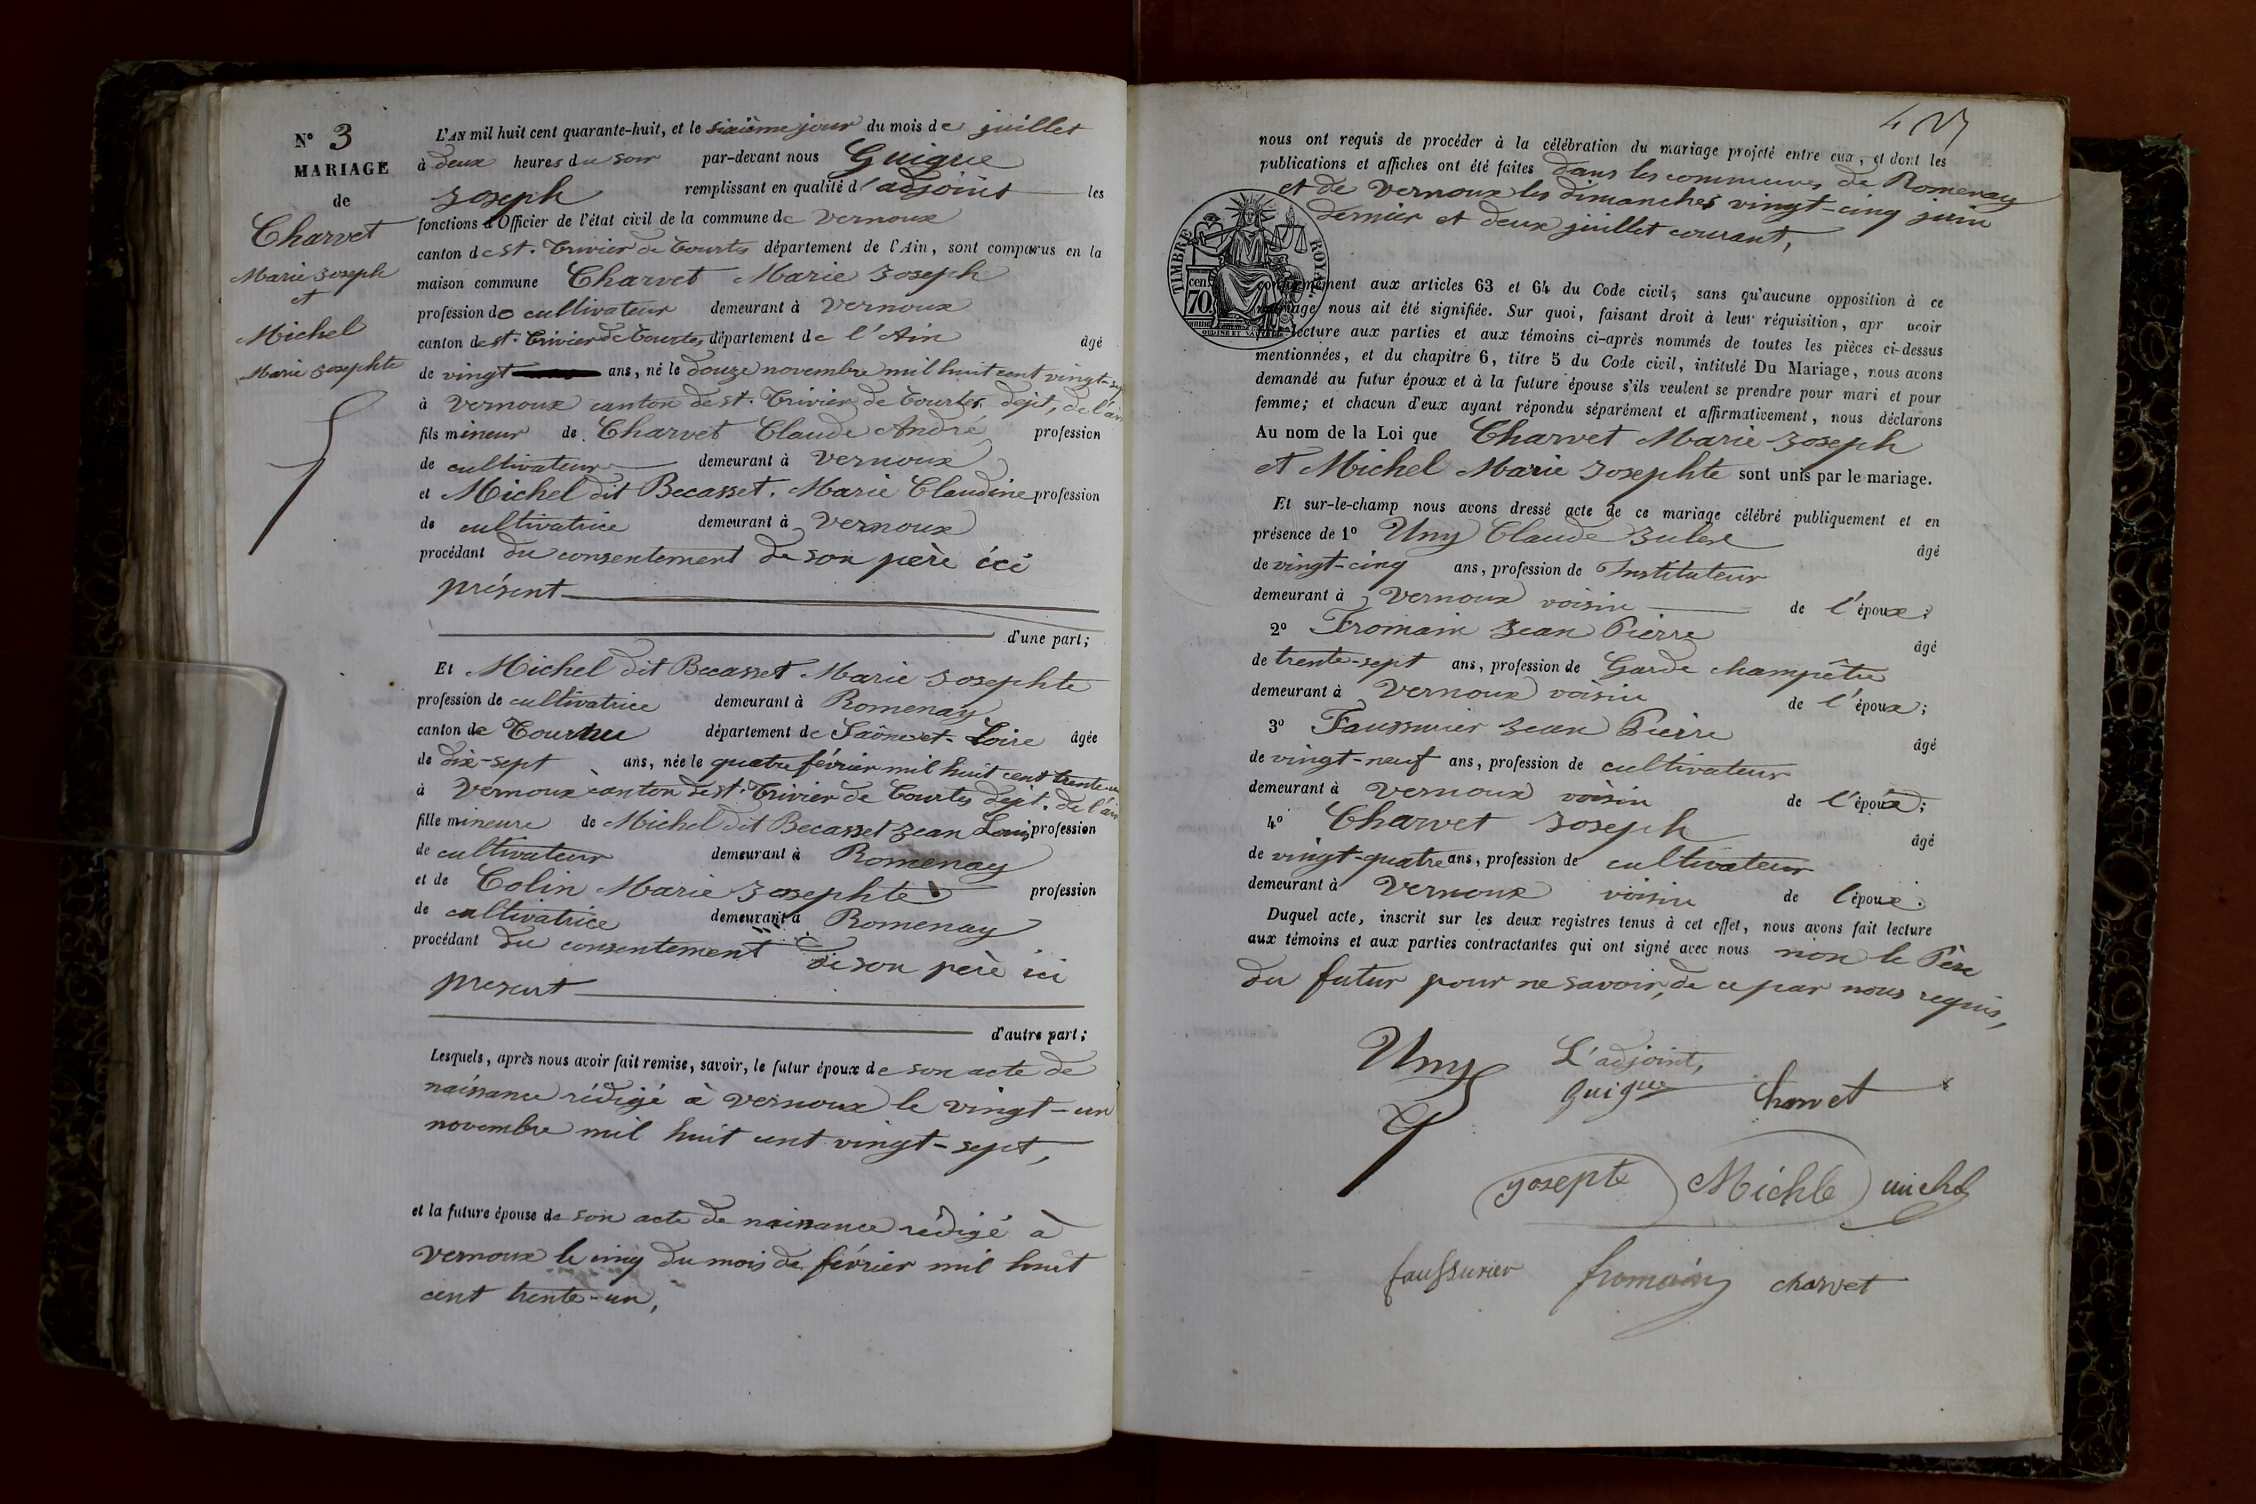 N° 3
MARIAGE
de
Charvet
Marie Joseph
et
Michel
Marie Josephte
L'AN mil huit cent quarante-huit, et le sixième jour du mois de juillet
à deux heures du soir par-devant nous Guigue
Joseph remplissant en qualité d'adjoint les
fonctions d'Officier de l'état civil de la commune de Vernoux
canton de St. Trivier de Courtes département de l'Ain, sont comparus en la
maison commune Charvet Marie Joseph
profession de cultivateur demeurant à Vernoux
canton de St. Trivier de Courtes département de l'Ain âgé
de vingt ans, né le douze novembre mil huit cent vingt-sept
à Vernoux canton de St. Trivier de Courtes dépt, de l'ain
fils mineur de Charvet Claude André profession
de cultivateur demeurant à Vernoux
et Michel dit Becasset Marie Claudine profession
de cultivatrice demeurant à Vernoux
procédant du consentement de son père ici
présent
d'une part;
Et Michel dit Becasset Marie Josephte
profession de cultivatrice demeurant à Romenay
canton de Tournu département de Saône-et-Loire âgée
de dix-sept ans, née le quatre février mil huit cent trente-un
à Vernoux canton de St. Trivier de Courtes dépt. de l'ain
fille mineure de Michel dit Becasset Jean Louis profession
de cultivateur demeurant à Romenay
et de Colin Marie Josephte profession
de cultivatrice demeurant à Romenay
procédant du consentement de son père ici
present
d'autre part;
Lesquels, après nous avoir fait remise, savoir, le futur époux de son acte de
naissance rédigé à Vernoux le vingt-un
novembre mil huit cent vingt-sept,
et la future épouse de son acte de naissance rédigé à
Vernoux le cinq du mois de février mil huit
cent trente-un,
nous ont requis de procéder à la célébration du mariage projeté entre eux, et dont les
publications et affiches ont été faites dans les communes de Romenay
et de Vernoux les dimanches vingt-cinq juin
dernier et deux juillet courant,
TIMBRE ROYAL
cen
70
conformément aux articles 63 et 64 du Code civil; sans qu'aucune opposition à ce
mariage nous ait été signifiée. Sur quoi, faisant droit à leur réquisition, apr avoir
lecture aux parties et aux témoins ci-après nommés de toutes les pièces ci-dessus
mentionnées, et du chapitre 6, titre 5 du Code civil, intitulé Du Mariage, nous avons
demandé au futur époux et à la future épouse s'ils veulent se prendre pour mari et pour
femme; et chacun d'eux ayant répondu séparément et affirmativement, nous déclarons
Au nom de la Loi que Charvet Marie Joseph
et Michel Marie Josephte sont unis par le mariage.
Et sur-le-champ nous avons dressé acte de ce mariage célébré publiquement et en
présence de 1° Uny Claude âgé
de vingt-cinq ans, profession de Instituteur
demeurant à Vernoux voisin de l'époux;
2° Fromain Jean Pierre âgé
de trente-sept ans, profession de Garde champêtre
demeurant à Vernoux voisin de l'époux;
3° Faussurier Jean Pierre âgé
de vingt-neuf ans, profession de cultivateur
demeurant à Vernoux voisin de l'époux;
4° Charvet Joseph âgé
de vingt-quatre ans, profession de cultivateur
demeurant à Vernoux voisin de l'époux.
Duquel acte, inscrit sur les deux registres tenus à cet effet, nous avons fait lecture
aux témoins et aux parties contractantes qui ont signé avec nous non le Père
du futur pour ne savoir, de ce par nous requis,
Uny
L'adjoint,
Guigue
Charvet
Josepte Michle michel
faussurier fromain charvet